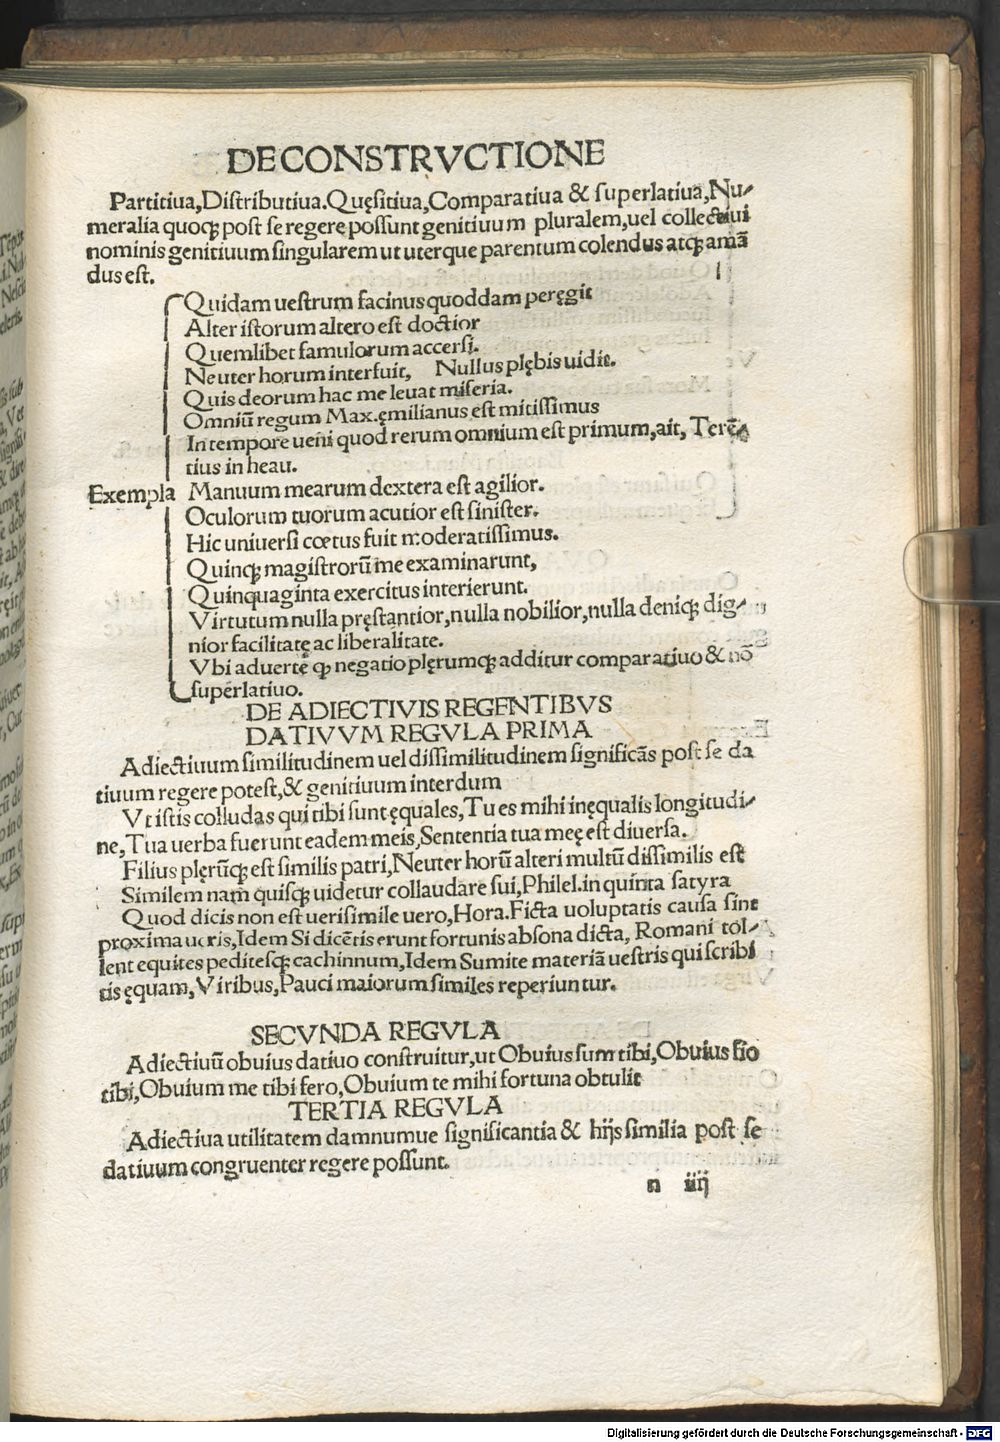 DE CONSTRVCTIONE
Partitiua,Distributiua.Quęsitiua,Comparatiua & superlatiua,Nu⸗
meralia quoqꝫ post se regerę possunt genitiuum pluralem,uel collectiui
nominis genitiuum singularem ut uterque parentum colendus atqꝫ amā
dus est.
Quidam uestrum facinus quoddam peręgit
Alter istorum altero est doctior
Quemlibet famulorum accersi.
Neuter horum interfuit, Nullus plębis uidit.
Quis deorum hac me leuat miseria.
Omniū regum Max.ęmilianus est mitissimus
In tempore ueni quod rerum omnium est primum,ait, Terē⸗
tius in heau.
Exempla Manuum mearum dextera est agilior.
Oculorum tuorum acutior est sinister.
Hic uniuersi cœtus fuit moderatissimus.
Quinqꝫ magistrorū me examinarunt,
Quinquaginta exercitus interierunt.
Virtutum nulla pręstantior,nulla nobilior,nulla deniqꝫ dig⸗
nior facilitatę ac liberalitate.
Vbi aduerte qꝫ negatio plęrumqꝫ additur comparatiuo & nō
superlatiuo.
DE ADIECTIVIS REGENTIBVS
DATIVVM REGVLA PRIMA
Adiectiuum similitudinem uel dissimilitudinem significās post se da
tiuum regere potest,& genitiuum interdum
Vt istis colludas qui tibi sunt ęquales,Tu es mihi inęqualis longitudi⸗
ne,Tua uerba fuerunt eadem meis,Sententia tua meę est diuersa.
Filius plęrūqꝫ est similis patri,Neuter horū alteri multū dissimilis est
Similem nam quisqꝫ uidetur collaudare sui,Philel.in quinta satyra
Quod dicis non est uerisimile uero,Hora.Ficta uoluptatis causa sint
proxima ueris,Idem Si dicētis erunt fortunis absona dicta, Romani tol⸗
lent equites peditesqꝫ cachinnum,Idem Sumite materiā uestris qui scribi
tis ęquam,Viribus,Pauci maiorum similes reperiuntur.
SECVNDA REGVLA
Adiectiuū obuius datiuo construitur,ut Obuius sum tibi,Obuius fio
tibi,Obuium me tibi fero,Obuium te mihi fortuna obtulit
TERTIA REGVLA
Adiectiua utilitatem damnumue significantia & hijs similia post se
datiuum congruenter regere possunt.
n iiij
Digitalisierung gefördert durch die Deutsche Forschungsgemeinschaft - DFG